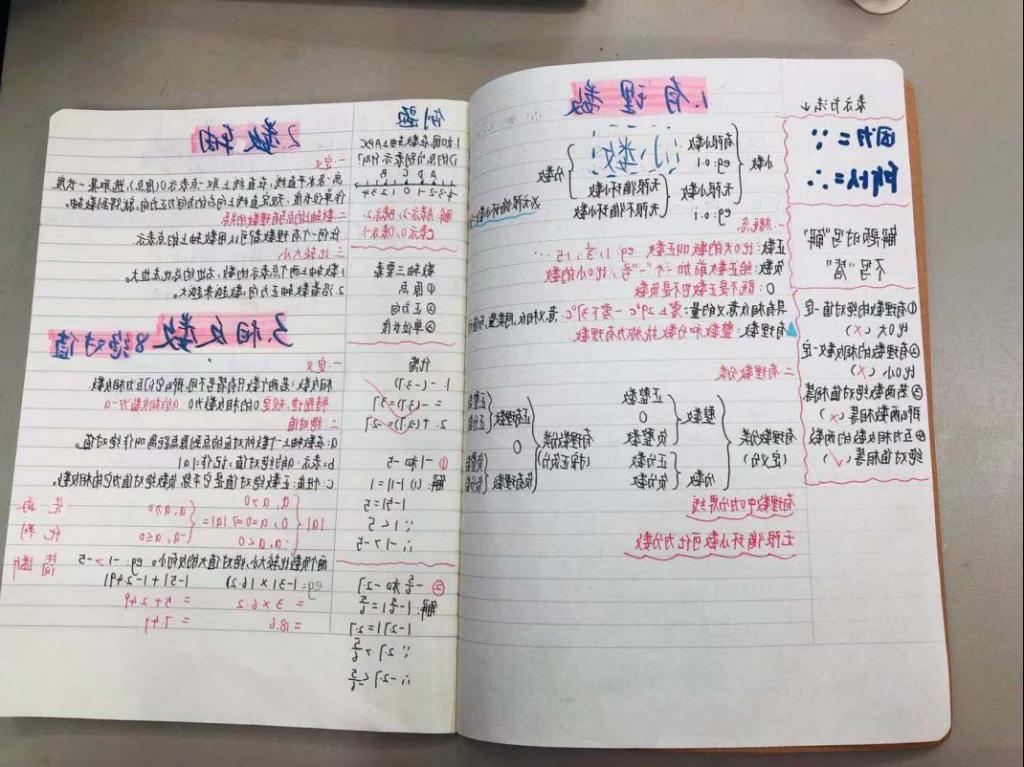 表示方法↓
因为=∵
所以=∴
解题时写"解"
不写"答"
①有理数的绝对值一定
比0大 (×)
②有理数的相反数一定
比0小 (×)
③若两数绝对值相等
则两数相等 (×)
④互为相反数的两数
绝对值相等 (√)
1.有理数
小数
有限小数
eg:0.1
无限小数
无限循环小数
无限不循环小数
eg:0.i
分数
小数!
一.概念
正数:比0大的数叫正数
负数:给正数前加一个"-"号,比0小的数
0:既不是正数也不是负数
具有相反意义的量:零上29℃-零下37℃.
有理数:整数和分数统称为有理数.
二.有理数分类
有理数
(定义分)
整数
正整数
0
负整数
分数
正分数
负分数
有理数
(按正负分)
正有理数
0
负有理数
有理数中0为分界线
无限循环小数可化为分数
例题
数轴三要素
①原点
②正方向
③单位长度
化简
1. -(-3.17)
=-(-3.17)=3.17
2. +(-2.7)=-2.7
① -1和-5
解: (1) |-1|=1
|-5|=5
∵1<5
∴-1>-5
② -5/6和-2.7
解:|-5/6|=5/6
|-2.7|=2.7
∵2.7>5/6
∴-2.7<-5/6
2.数轴
一.定义
二.数轴上的点与有理数的关系
任何一个有理数都可以用数轴上的点表示
三.比较大小
1.数轴上两个点表示的数,右边的总比左边大.
2.沿着数轴正方向,数越来越大.
3.相反数&绝对值
一.定义
相反数:若两个数只有符号不同,那么它们互为相反数
特别地,规定0的相反数为0 a的相反数为-a
二.绝对值
a:在数轴上一个数所对应的点到原点距离叫作绝对值.
b:表示:a的绝对值,记作|a|
c:性质:正数绝对值是它本身,负数绝对值为它的相反数.
|a|
a,a>0
0,a=0⇒|a|=
-a,a<0
a,a≥0
-a,a≤0
两个负数比较大小,绝对值大的反而小. eg:-1>-5
eg:|-3|×|6.2|
=3×6.2
=18.6
|-5|+|-2.49|
=5+2.49
=7.49